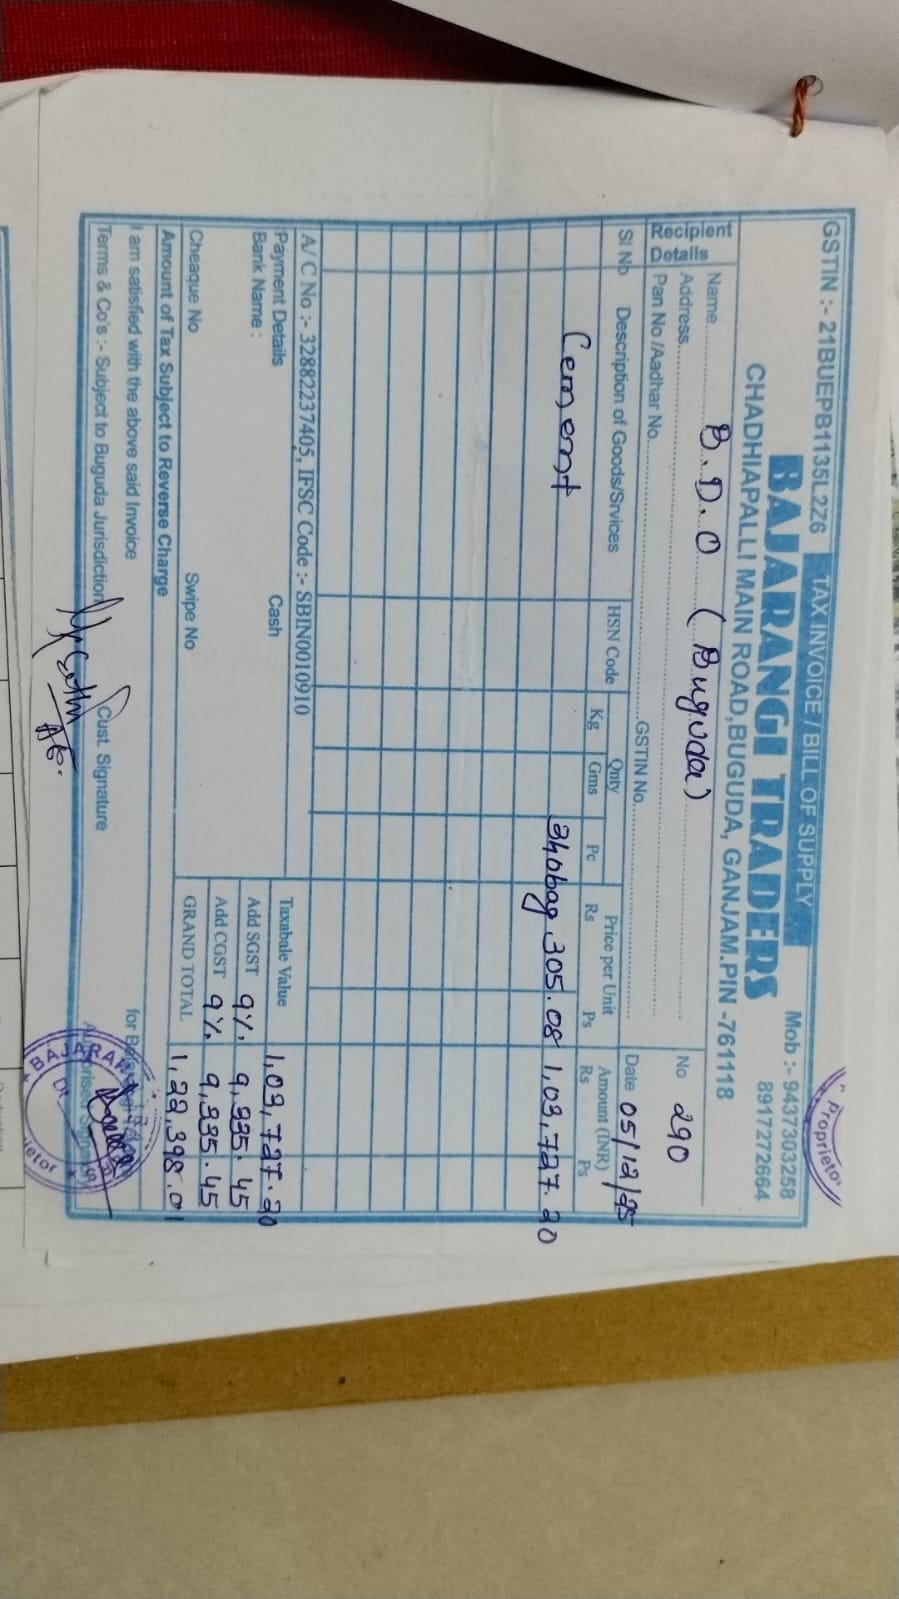 GSTIN :- 21BUEPB1135L2Z6 TAX INVOICE / BILL OF SUPPLY Mob :- 9437303258
8917272664
BAJARANGI TRADERS
CHADHIAPALLI MAIN ROAD,BUGUDA, GANJAM.PIN -761118
Recipient Details
Name B.D.O (Buguda)
Address
Pan No /Aadhar No GSTIN No
No 290
Date 05/12/25
Sl No Description of Goods/Srvices HSN Code Qnty Price per Unit Amount (INR)
Kg Gms Pc Rs Ps Rs Ps
Cement 340bag 305.08 1,03,727.20
A/ C No :- 32882237405, IFSC Code :- SBIN0010910
Payment Details Cash
Bank Name :
Cheaque No Swipe No
Taxabale Value 1,03,727.20
Add SGST 9% 9,335.45
Add CGST 9% 9,335.45
GRAND TOTAL 1,22,398.01
Amount of Tax Subject to Reverse Charge
I am satisfied with the above said Invoice
Terms & Co's :- Subject to Buguda Jurisdiction Cust. Signature
for
Proprietor